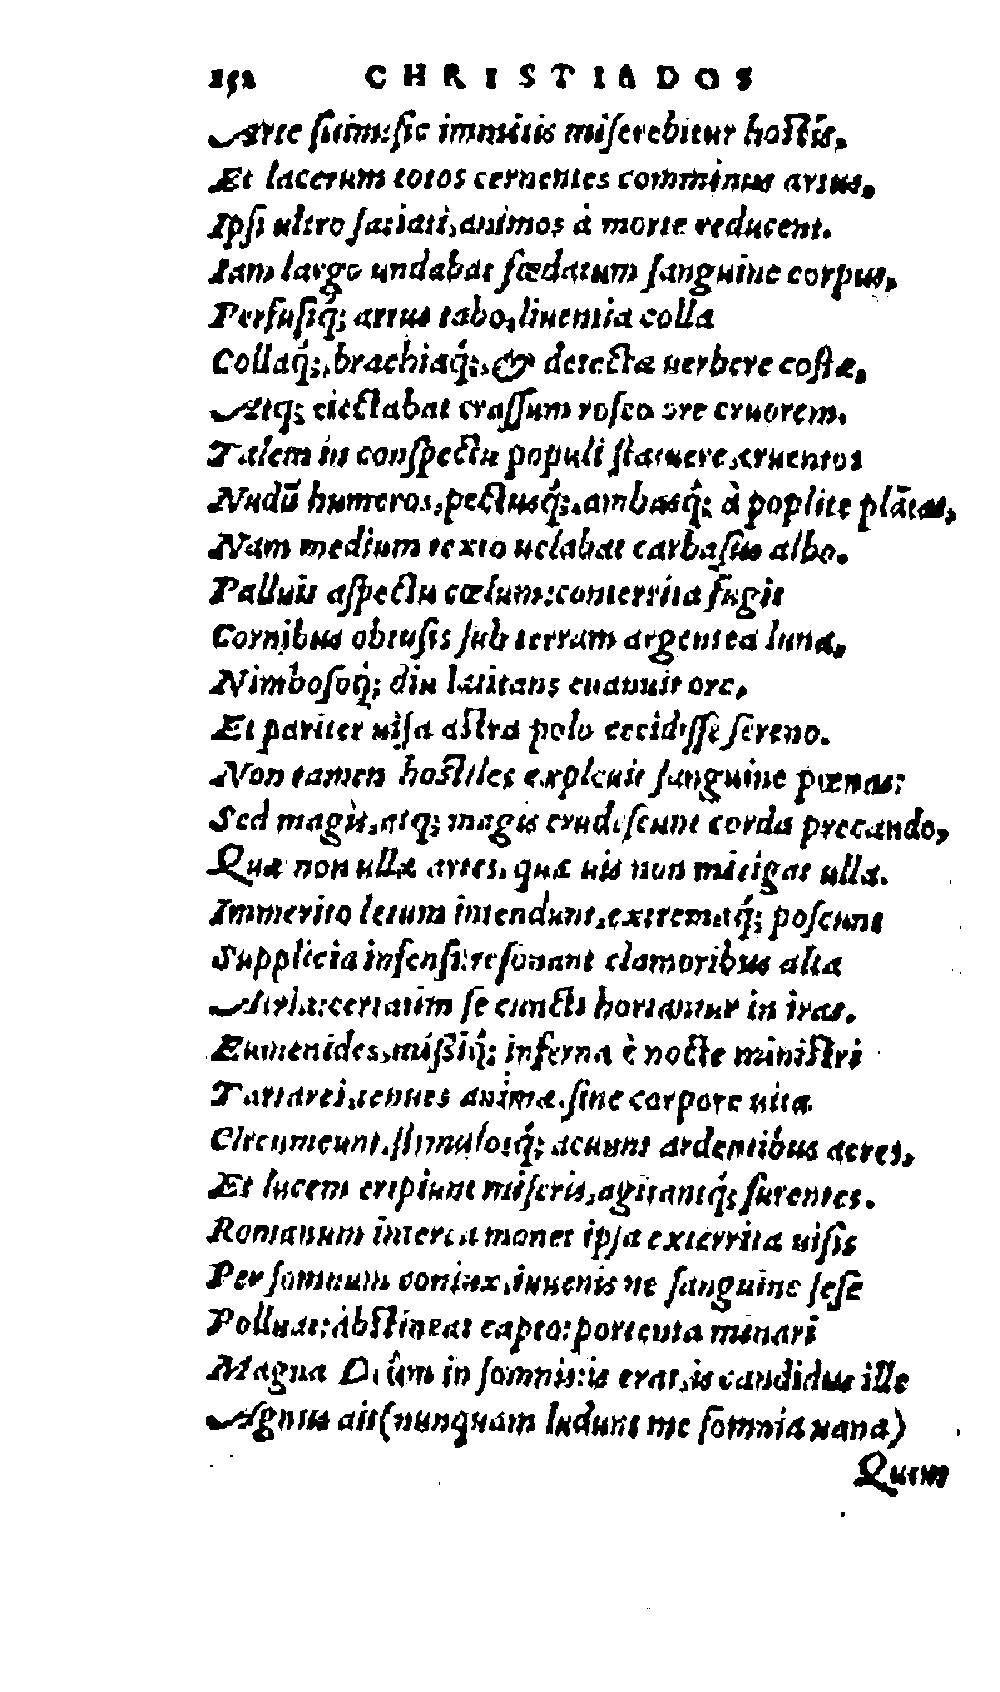 152 CHRISTIADOS
Arte ſuũ: ſic immitis miſerebitur hoſtis,
Et lacerum totos cernentes comminus artus,
Ipſi ultro ſatiati, animos à morte reducent.
Iam largo undabat fœdatum ſanguine corpus,
Perfuſiq́; artus tabo, liuentia colla
Collaq́;, brachiaq́;, & detectæ uerbere coſtæ,
Atq; eiectabat craſſum roſeo ore cruorem.
Talem in conſpectu populi ſtatuere, cruentos
Nudũ humeros, pectusq́;, ambasq́; à poplite plãtas,
Nam medium texto uelabat carbaſus albo.
Palluit aſpectu cœlum: conterrita fugit
Cornibus obtuſis ſub terram argentea luna,
Nimboſoq́; diu latitans euanuit orc,
Et pariter uiſa aſtra polo cecidiſſe ſereno.
Non tamen hoſtiles expleuit ſanguine pœnas:
Sed magis, atq; magis crudeſcunt corda precando,
Quæ non ullæ artes, quæ uis non mitigat ulla.
Immerito letum intendunt, extremaq́; poſcunt
Supplicia infenſi: reſonant clamoribus alta
Atria: certatim ſe cuncti hortantur in iras.
Eumenides, miſsiq́; inferna è nocte miniſtri
Tartarei, tenues animæ ſine corpore uitæ
Circumeunt, ſtimuloſq́; acuunt ardentibus acres,
Et lucem eripiunt miſeris, agitantq́; furentes.
Romanum interea monet ipſa exterrita uiſis
Per ſomnum coniux, iuuenis ne ſanguine ſeſe
Polluat: abſtineat capto: portenta minari
Magna Deûm in ſomnis: is erat, is candidus ille
Agnus ait (nunquam ludunt me ſomnia uana)
Quem